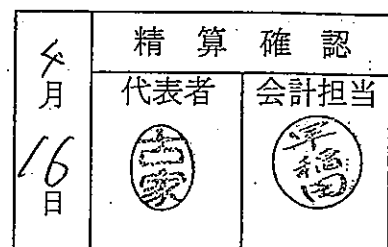 4月16日
精算確認
代表者 会計担当
早稲田